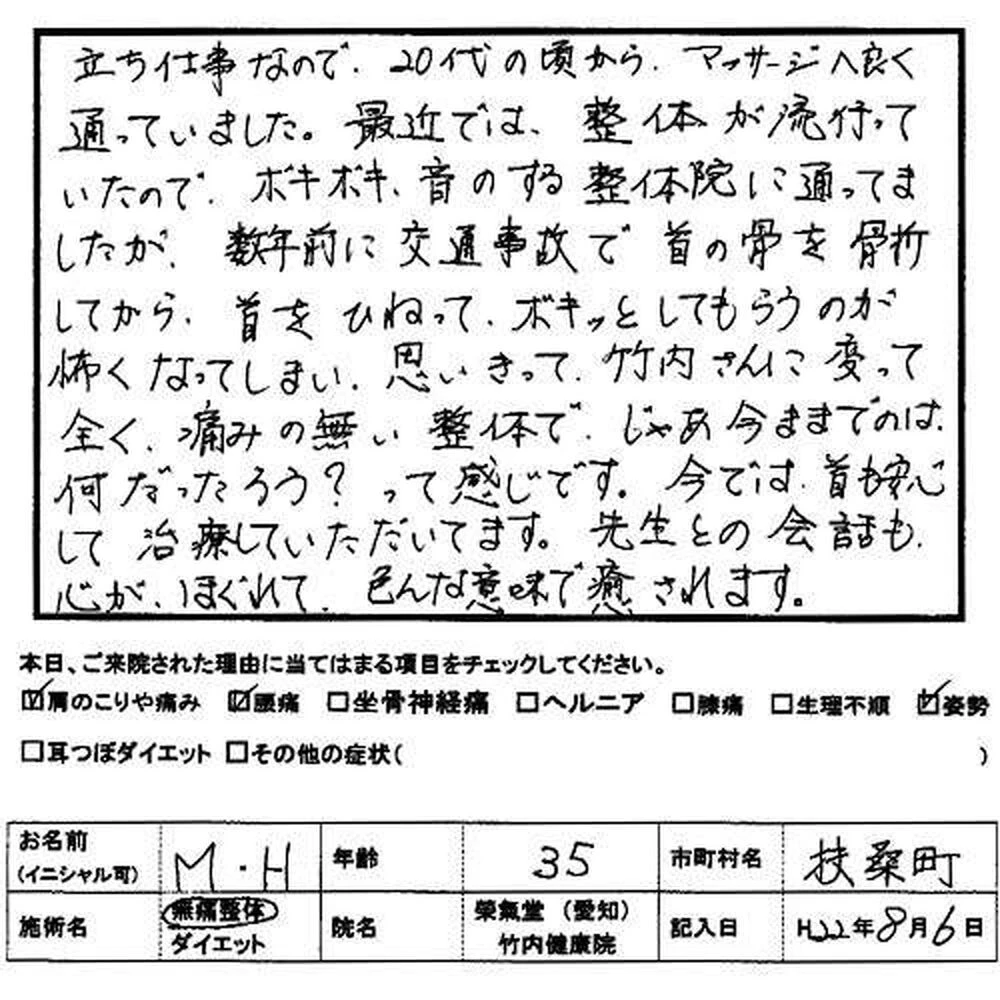 立ち仕事なので、20代の頃から、マッサージへ良く
通っていました。最近では、整体が流行って
いたので、ボキボキ、音のする整体院に通ってま
したが、数年前に交通事故で首の骨を骨折
してから、首をひねって、ボキッとしてもらうのが
怖くなってしまい、思いきって、竹内さんに変って
全く、痛みの無い整体で、じゃあ今までのは、
何だったろう?って感じです。今では、首も安心
して治療していただいてます。先生との会話も、
心が、ほぐれて、色んな意味で癒されます。
本日、ご来院された理由に当てはまる項目をチェックしてください。
☑肩のこりや痛み ☑腰痛 □坐骨神経痛 □ヘルニア □膝痛 □生理不順 ☑姿勢
□耳つぼダイエット □その他の症状( )
お名前 (イニシャル可) M・H 年齢 35 市町村名 扶桑町
施術名 無痛整体 ダイエット 院名 榮氣堂(愛知) 竹内健康院 記入日 H22年8月6日